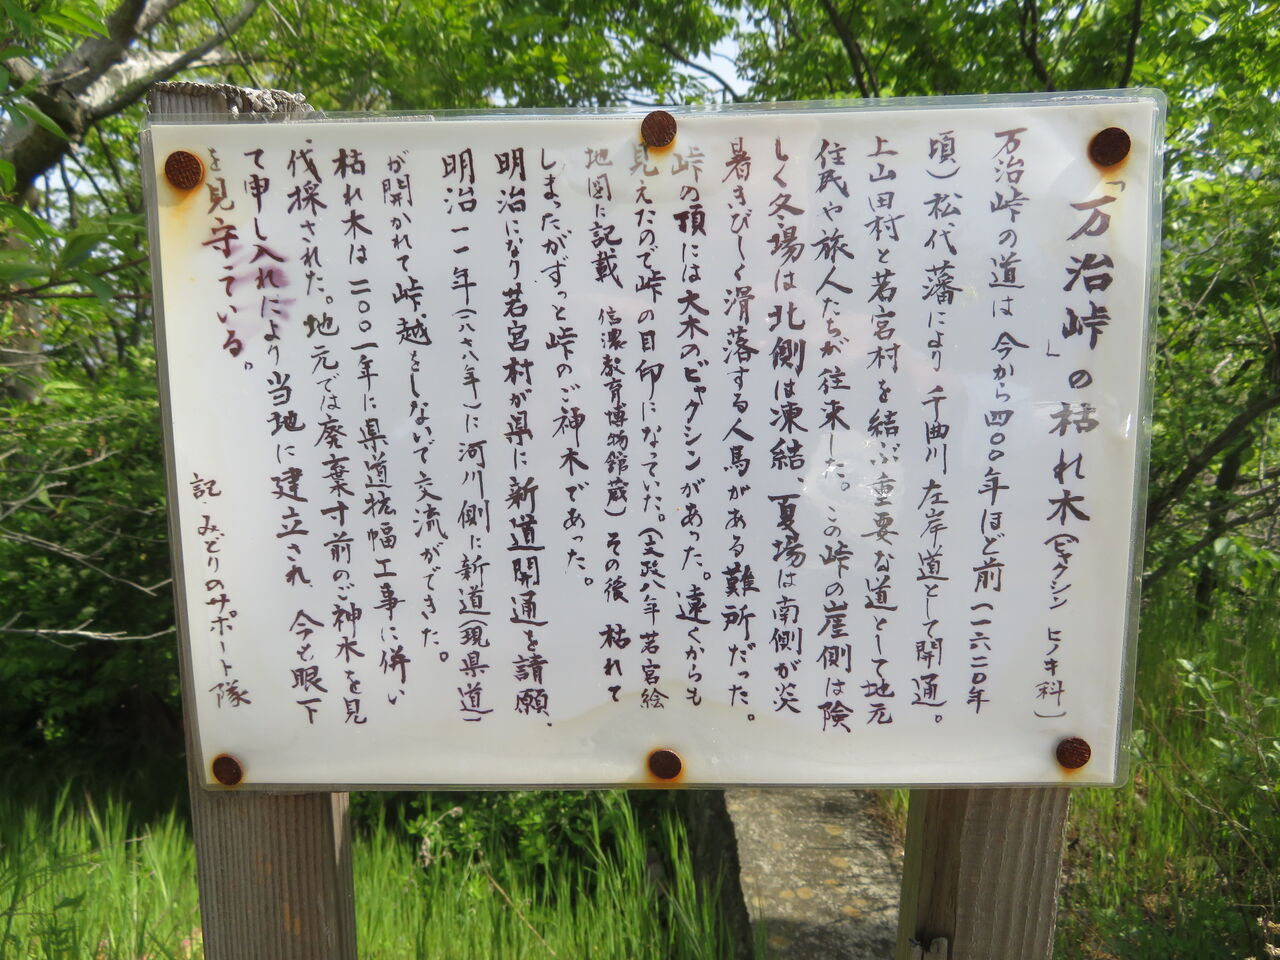 「万治峠」の枯れ木(ビャクシン ヒノキ科)
万治峠の道は 今から四〇〇年ほど前 一六二〇年
頃)松代藩により 千曲川左岸道として開通。
上山田村と若宮村を結ぶ重要な道として地元
住民や旅人たちが往来した。この峠の崖側は険
しく冬場は北側は凍結 夏場は南側が炎
暑きびしく滑落する人馬がある難所だった。
峠の頂には大木のビャクシンがあった。遠くからも
見えたので峠の目印になっていた。(文政八年若宮絵
地図に記載 信濃教育博物館蔵)その後 枯れて
しまったがずっと峠のご神木であった。
明治になり若宮村が県に新道開通を請願、
明治一一年(一八七八年)に河川側に新道(現県道)
が開かれて峠越をしないで交流ができた。
枯れ木は二〇〇一年に県道拡幅工事に併い
伐採された。地元では廃棄寸前のご神木を見
て申し入れにより当地に建立され 今も眼下
を見守っている。
記 みどりのサポート隊